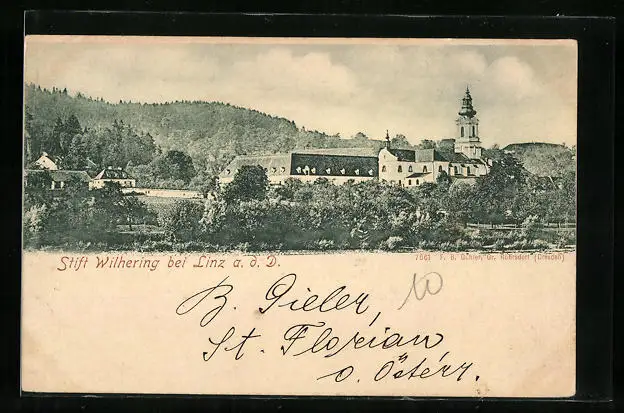 Stift Wilhering bei Linz a. d. D.
7661 F. B. Günter, Gr. Röhrsdorf (Dresden)
10
B. Pieler,
St. Florian
o. Österr.